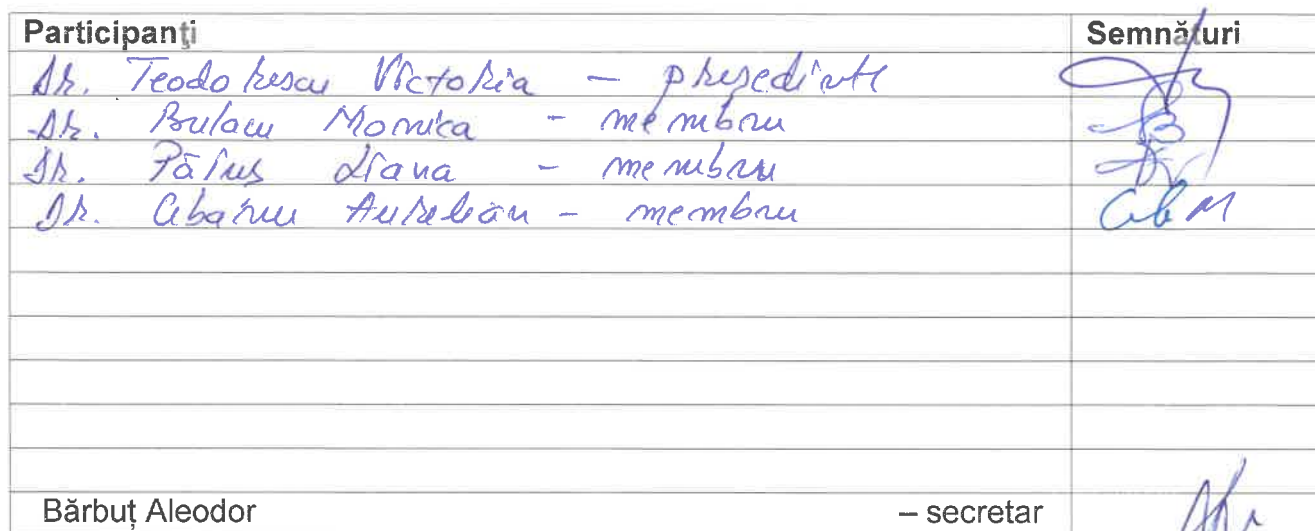 Participanți Semnături
Dr. Teodorescu Victoria – președinte
Dr. Bulacu Monica – membru
Dr. Păiuș Liana – membru
Dr. Abaru Aurelian – membru
Bărbuț Aleodor – secretar